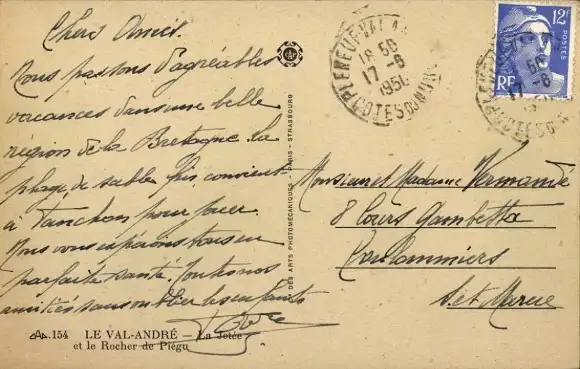 Chers Amis.
Nous passons d'agréables
vacances dans une belle
région de la Bretagne. La
plage de sable fin, convient
à Fanchon pour jouer.
Nous vous espérons tous en
parfaite santé. Toutes nos
amitiés sans oublier les enfants
154 LE VAL-ANDRÉ – La Jetée
et le Rocher de Piégu
DES ARTS PHOTOMÉCANIQUES - PARIS - STRASBOURG
PLENEUF-VAL-A
18 50
17 - 6
1950
COTES DU NORD
12F
POSTES
RF
Monsieur et Madame
8 Cours Gambetta
Coulommiers
S. et Marne